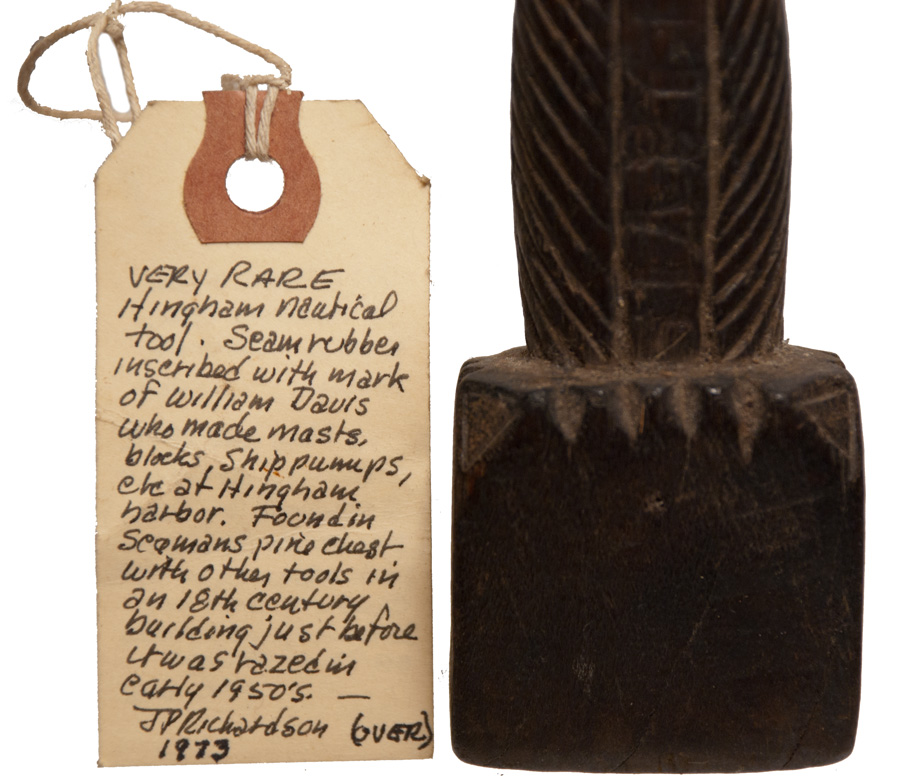 VERY RARE
Hingham nautical
tool. Seam rubber
inscribed with mark
of William Davis
who made masts,
blocks, Ship pumps,
etc at Hingham
harbor. Found in
Seamans pine chest
with other tools in
an 18th century
building just before
it was razed in
early 1950's. —
JP Richardson (OVER)
1973